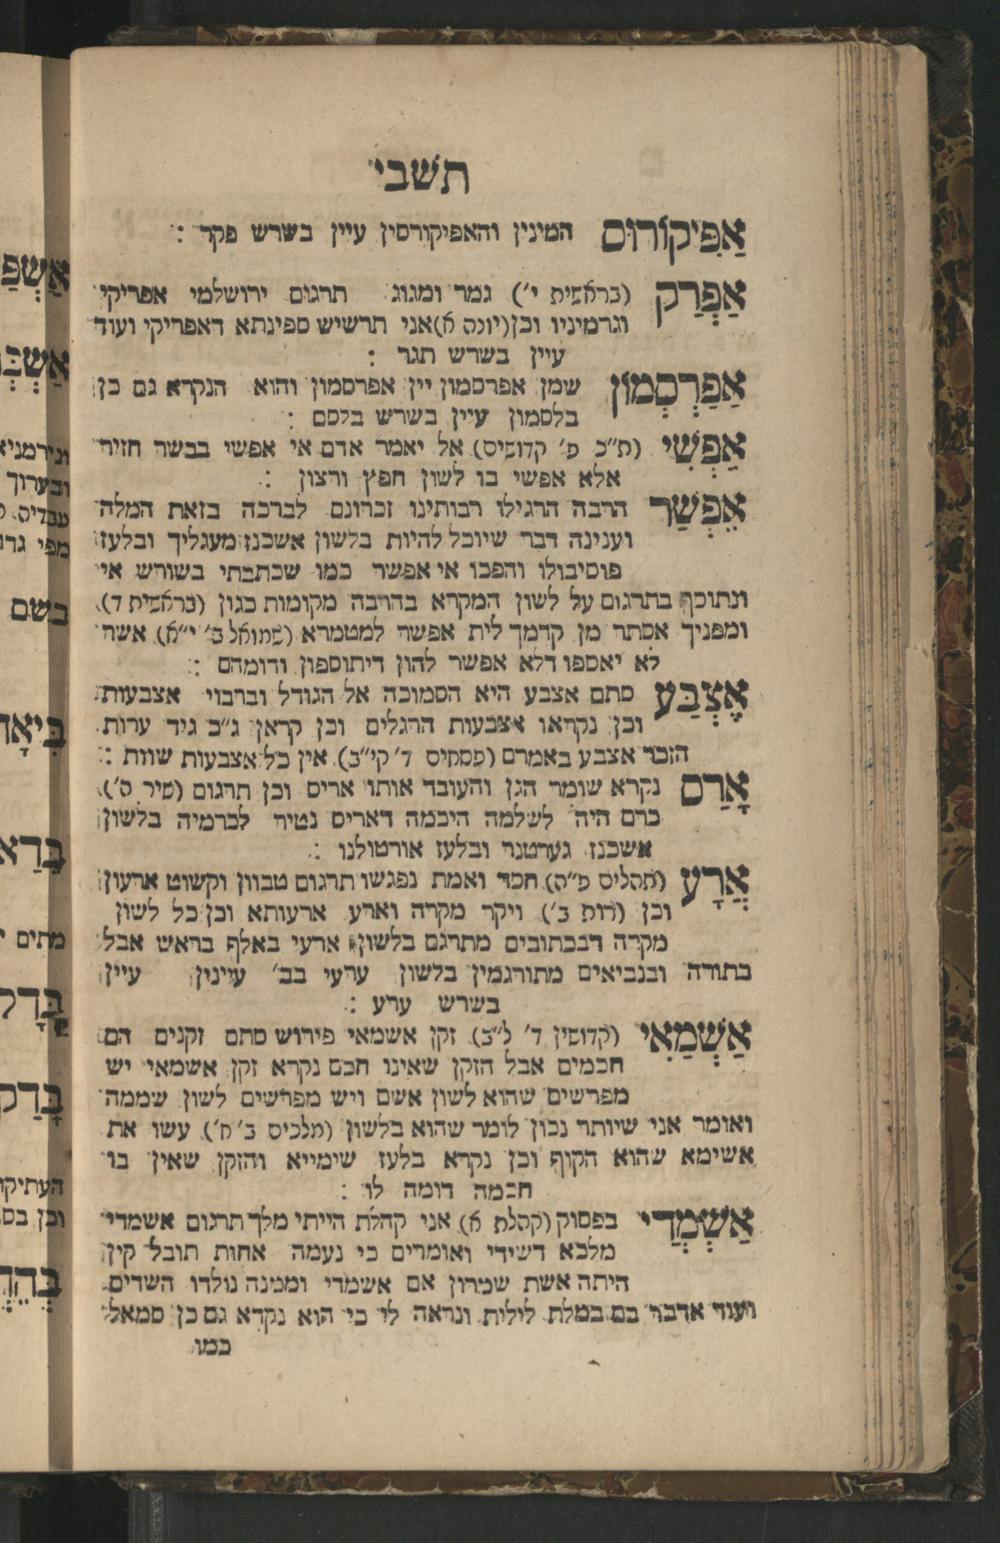 תשבי
אַפִּיקוֹרוּס המינין והאפיקורסין עיין בשרש פקר :
אַפְרַק (בראשית י') גמר ומגוג תרגום ירושלמי אפריקי
וגרמיניו וכן (יונה א) אני תרשיש ספינתא דאפריקי ועוד
עיין בשרש תגר :
אַפַרְסְמוֹן שמן אפרסמון יין אפרסמון והוא הנקרא גם כן
בלסמון עיין בשרש בלסם :
אֶפְשִׁי (ת"כ פ' קדושים) אל יאמר אדם אי אפשי בבשר חזיר
אלא אפשי בו לשון חפץ ורצון :
אֶפְשַׁר הרבה הרגילו רבותינו זכרונם לברכה בזאת המלה
וענינה דבר שיוכל להיות בלשון אשכנז מעגליך ובלעז
פוסיבולו והפכו אי אפשר כמו שכתבתי בשורש אי
ונתוכף בתרגום על לשון המקרא בהרבה מקומות כגון (בראשית ד)
ומפניך אסתר מן קדמך לית אפשר למטמרא (שמואל ב' י"א) אשר
לא יאספו דלא אפשר להון דיתוספון ודומהם :
אֶצְבַּע סתם אצבע היא הסמוכה אל הגודל וברבוי אצבעות
וכן נקראו אצבעות הרגלים וכן קראן ג"כ גיד ערות
הזכר אצבע באמרם (פסחים ד' קי"ב) אין כל אצבעות שוות :
אָרַם נקרא שומר הגן והעובד אותו אריס וכן תרגום (שיר ח')
כרם היה לשלמה היכמה דאריס נטיר לכרמיה בלשון
אשכנז גערטנר ובלעז אורטולנו :
אֲרָע (תהלים פ"ה) חסד ואמת נפגשו תרגום טבוון וקשוט ארעון
וכן (רות ב') ויקר מקרה וארע ארעותא וכן כל לשון
מקרה דבכתובים מתרגם בלשון ארעי באלף בראש אבל
בתורה ובנביאים מתורגמין בלשון ערעי בב' עיינין עיין
בשרש ערע :
אַשְׁמַאִי (קדושין ד' ל"ב) זקן אשמאי פירוש סתם זקנים הם
חכמים אבל הזקן שאינו חכם נקרא זקן אשמאי יש
מפרשים שהוא לשון אשם ויש מפרשים לשון שממה
ואומר אני שיותר נכון לומר שהוא בלשון (מלכים ב' ח') עשו את
אשימא שהוא הקוף וכן נקרא בלעז שימייא והזקן שאין בו
חכמה דומה לו :
אַשְׁמְדַי בפסוק (קהלת א) אני קהלת הייתי מלך תרגום אשמדי
מלכא דשידי ואומרים כי נעמה אחות תובל קין
היתה אשת שמרון אם אשמדי וממנה נולדו השדים
ועוד אדבר בם במלת לילית ונראה לי כי הוא נקרא גם כן סמאל
כמו
אַשְׁפַּ
אַשְׁבּ
וגירמניא
ובערוך
בשם
בִּיאָ
בָּרָא
מתים
בָּדַק
העתיקו
וכן בס